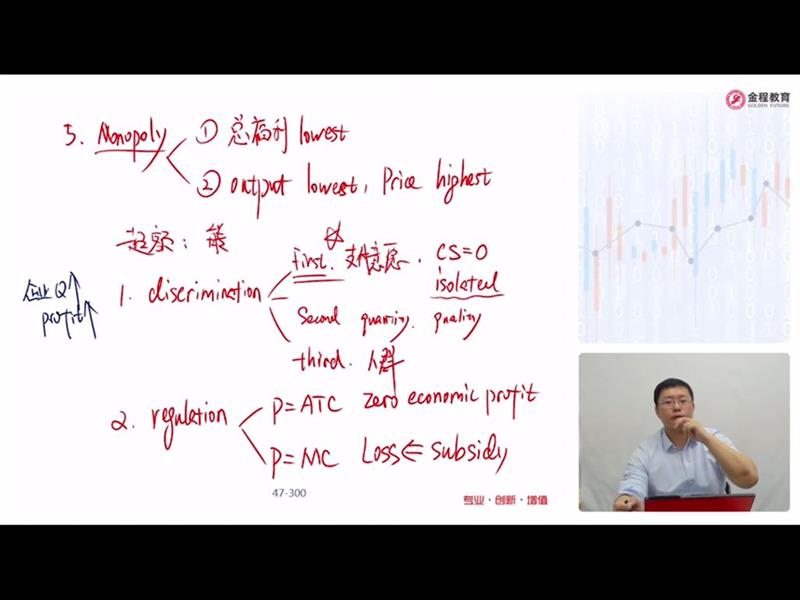 金程教育
GOLDEN FUTURE
3. Monopoly ① 总福利 lowest
② output lowest, Price highest
超额: 能
First. 支付意愿. CS=0
isolated
1. discrimination
企业 Q↑
profit↑
Second quantity. quality
third. 人群
2. regulation
P=ATC zero economic profit
P=MC Loss ⇐ subsidy
47-300
专业·创新·增值